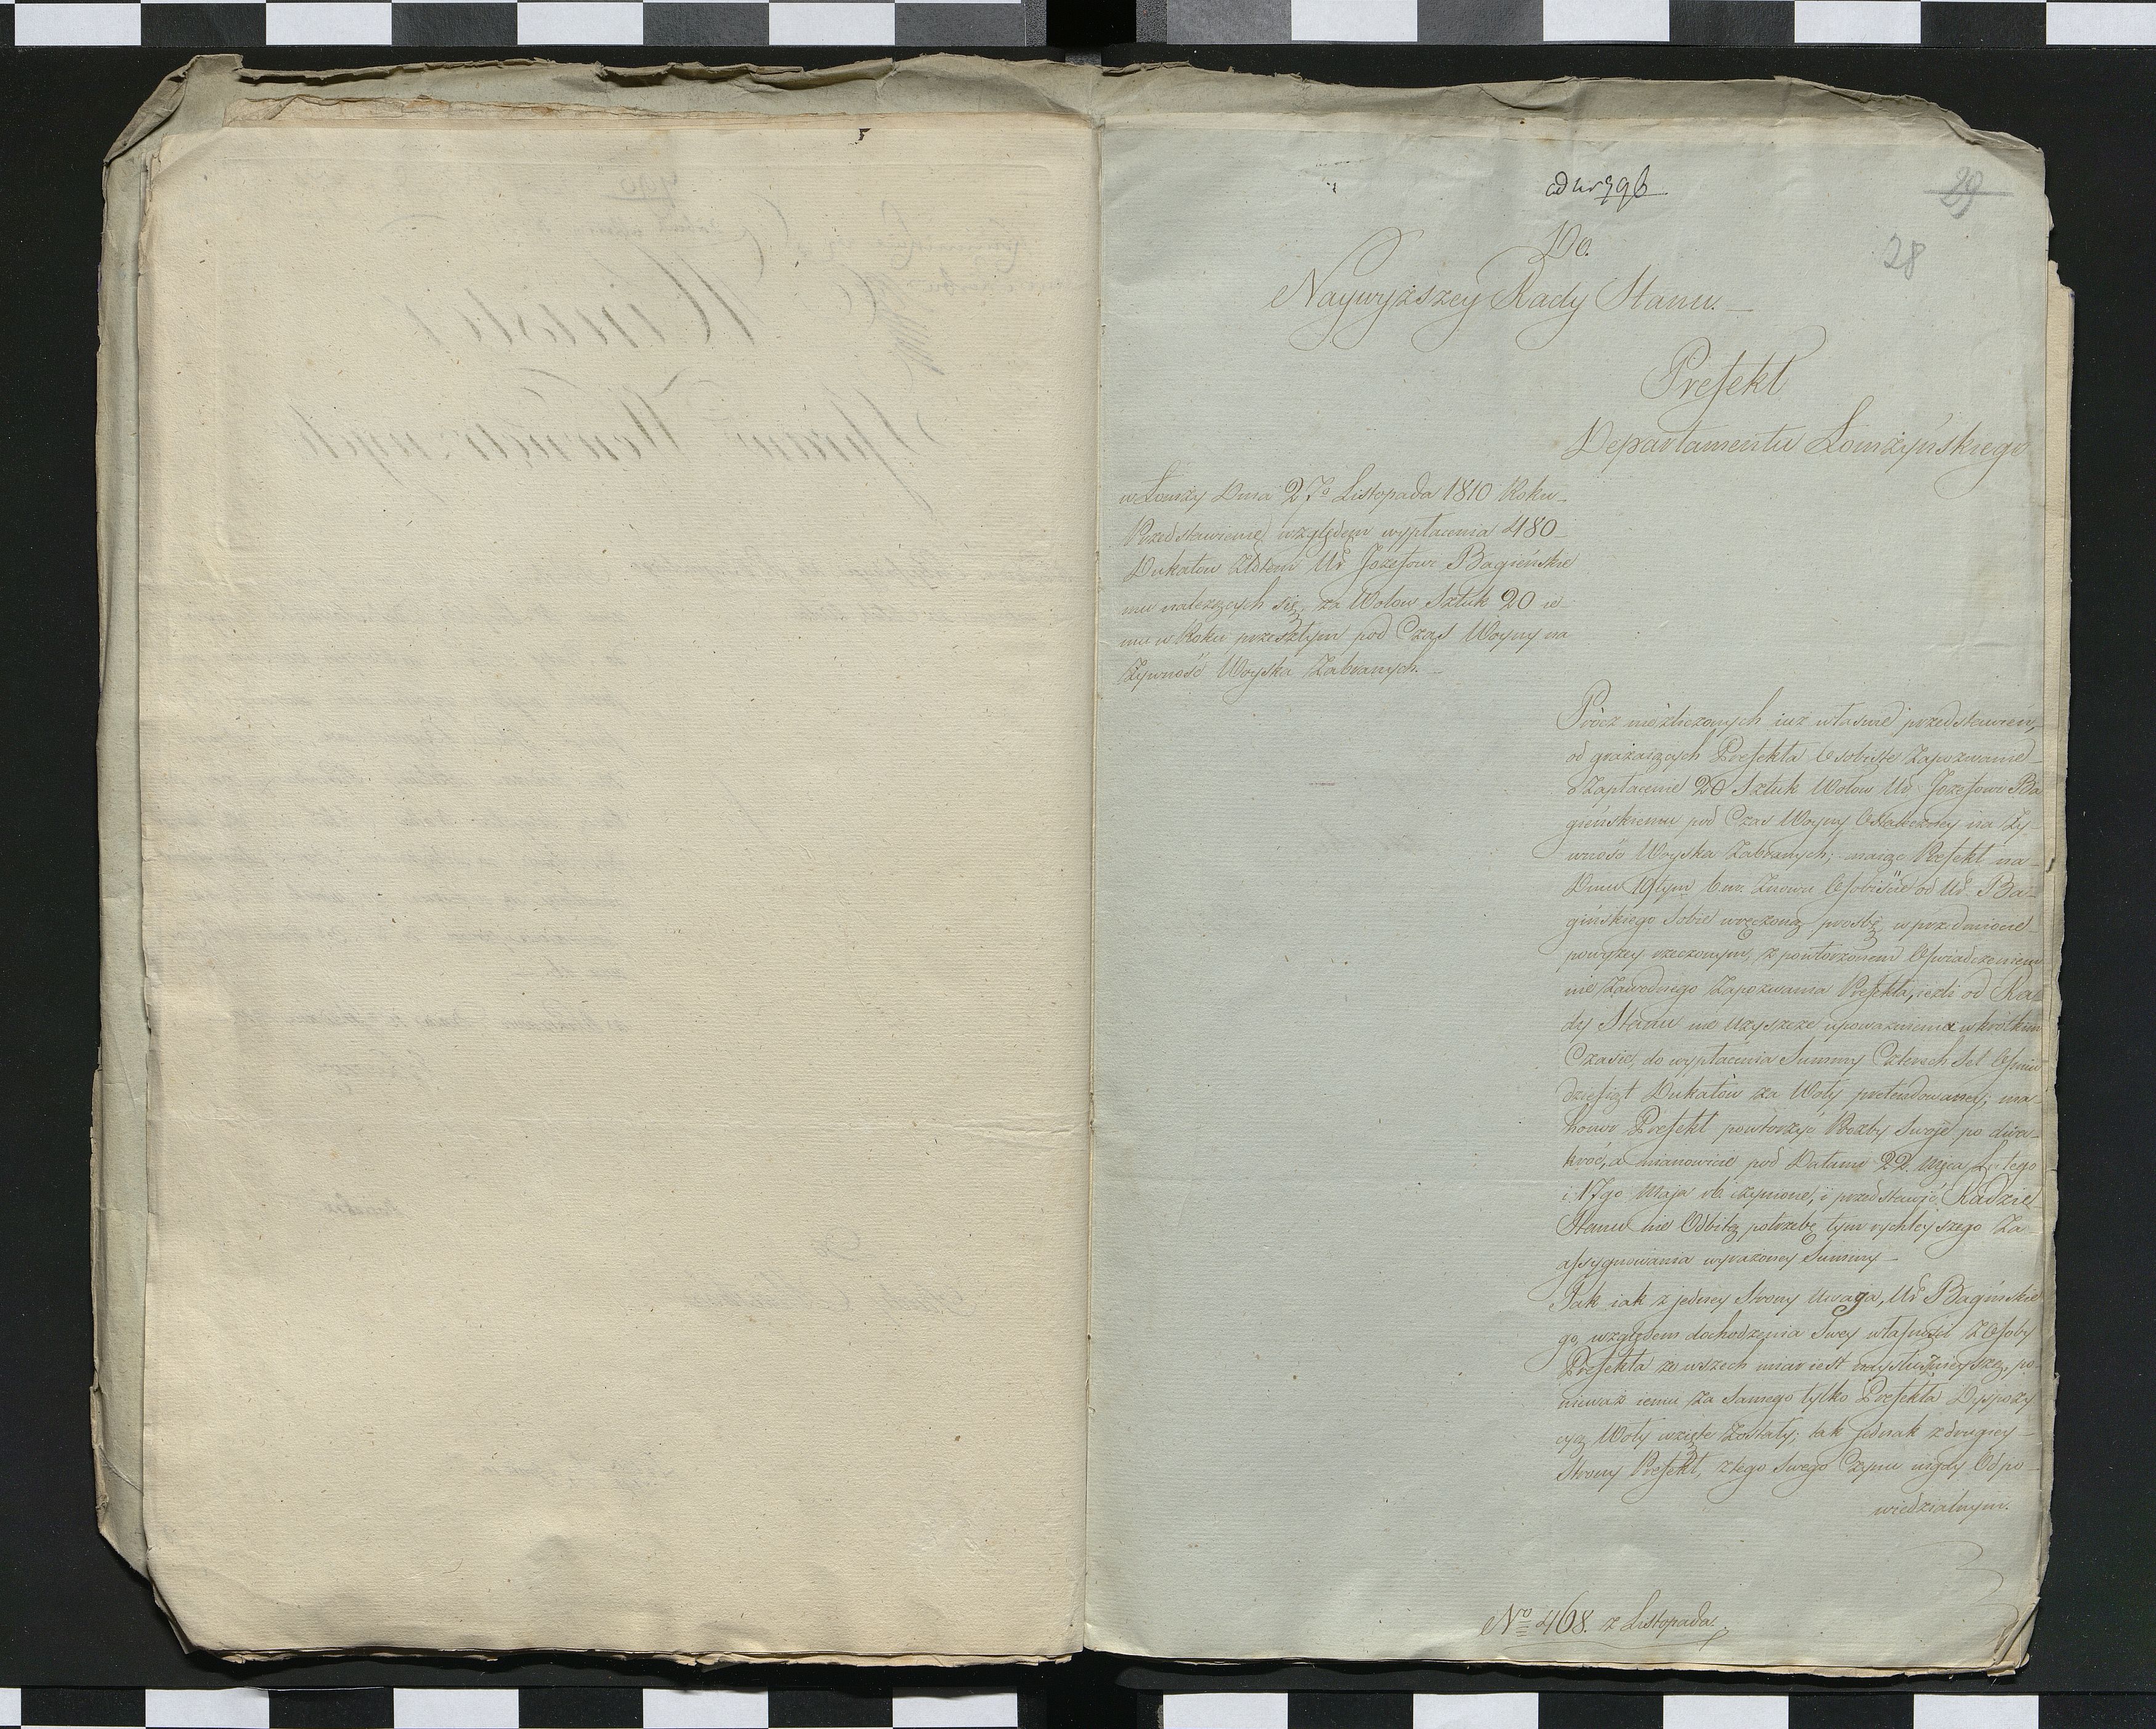 29
28
Do.
Naywyższey Rady Stanu.
Prefekt
Departamentu Łomżyńskiego
w Łomży Dnia 27º Listopada 1810 Roku
Przedstawienie względem wypłacenia 480
Dukatow Złotem Ur Jozefowi Bagieńskie
mu należących się, za Wołow Sztuk 20 ie
mu w Roku przeszłym pod Czas Woyny na
Żywność Woyska Zabranych.
Prócz niezliczonych iuz właśnie przedstawień,
od grażaiących Prefekta Osobiste Zapozwanie
o Zapłacenie 20 Sztuk Wołow Ur Jozefowi Ba
gieńskiemu pod Czas Woyny Ostateczney na Ży-
wność Woyska Zabranych; maiąc Prefekt na
Dniu 19tym b. m. Znowu Osobiście od Ur. Ba-
gińskiego Sobie wręczoną prosbę w przedmiocie
powyżey rzeczonym, z powtorzonem Oświadczeniem
nie Zawodnego Zapozwania Prefekta, ieżli od Ra
dy Stanu nie Uzyszcze upoważnienia w krótkim
Czasie, do wypłacenia Summy Czterech Set Ośmiu
dziesiąt Dukatów za Woły pretendowaney; ma
honor Prefekt powtorzyć Prozby Swoje po dwa-
kroć, a mianowicie pod Datami 22. Mjca Lutego
i 17go Maja rb. czynione, i przedstawić Radzie
Stanu nie Odbitą potrzebę tym rychleyszego Za-
assygnowania wyrażoney Summy
Jak iak z jedney Strony Uwaga, Ur Bagińskie
go, względem dochodzenia Swey własności z Osoby
Prefekta ze wszech miar iest naysłusznieyszą, po
nieważ iemu za Samego tylko Prefekta Dyspozy
cyą Woły wzięte Zostały; tak jednak z drugiey
Strony Prefekt, z tego Swego Czynu nigdy Odpo-
wiedzialnym.
Nº 468. z Listopada.